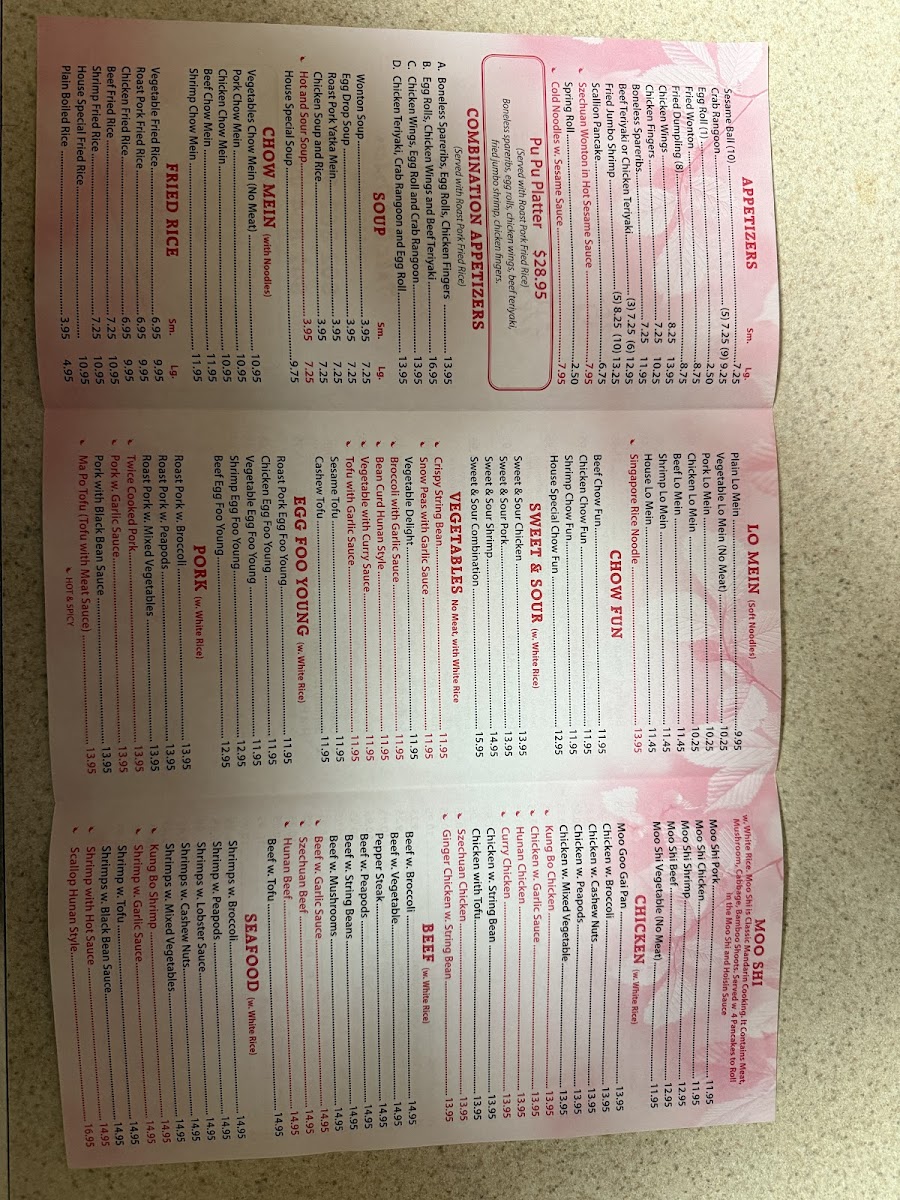 APPETIZERS
Sm. Lg.
Sesame Ball (10) 7.25
Crab Rangoon (5) 7.25 (9) 9.25
Egg Roll (1) 2.50
Fried Wonton 8.75
Fried Dumpling (8) 8.75
Chicken Wings 8.25 13.95
Chicken Fingers 7.25 10.25
Boneless Spareribs 7.25 11.95
Beef Teriyaki or Chicken Teriyaki (3) 7.25 (6) 12.95
Fried Jumbo Shrimp (5) 8.25 (10) 13.25
Scallion Pancake 6.75
Szechuan Wonton in Hot Sesame Sauce 7.95
Spring Roll 2.50
Cold Noodles w. Sesame Sauce 7.95
Pu Pu Platter $28.95
(Served with Roast Pork Fried Rice)
Boneless spareribs, egg rolls, chicken wings, beef teriyaki,
fried jumbo shrimp, chicken fingers.
COMBINATION APPETIZERS
(Served with Roast Pork Fried Rice)
A. Boneless Spareribs, Egg Rolls, Chicken Fingers 13.95
B. Egg Rolls, Chicken Wings and Beef Teriyaki 16.95
C. Chicken Wings, Egg Roll and Crab Rangoon 13.95
D. Chicken Teriyaki, Crab Rangoon and Egg Roll 13.95
SOUP
Sm. Lg.
Wonton Soup 3.95 7.25
Egg Drop Soup 3.95 7.25
Roast Pork Yatka Mein 3.95 7.25
Chicken Soup and Rice 3.95 7.25
Hot and Sour Soup 3.95 7.25
House Special Soup 9.75
CHOW MEIN (with Noodles)
Vegetables Chow Mein (No Meat) 10.95
Pork Chow Mein 10.95
Chicken Chow Mein 10.95
Beef Chow Mein 11.95
Shrimp Chow Mein 11.95
FRIED RICE
Sm. Lg.
Vegetable Fried Rice 6.95 9.95
Roast Pork Fried Rice 6.95 9.95
Chicken Fried Rice 6.95 9.95
Beef Fried Rice 7.25 10.95
Shrimp Fried Rice 7.25 10.95
House Special Fried Rice 10.95
Plain Boiled Rice 3.95 4.95
LO MEIN (Soft Noodles)
Plain Lo Mein 9.95
Vegetable Lo Mein (No Meat) 10.25
Pork Lo Mein 10.25
Chicken Lo Mein 10.25
Beef Lo Mein 11.45
Shrimp Lo Mein 11.45
House Lo Mein 11.45
Singapore Rice Noodle 13.95
CHOW FUN
Beef Chow Fun 11.95
Chicken Chow Fun 11.95
Shrimp Chow Fun 11.95
House Special Chow Fun 12.95
SWEET & SOUR (w. White Rice)
Sweet & Sour Chicken 13.95
Sweet & Sour Pork 13.95
Sweet & Sour Shrimp 14.95
Sweet & Sour Combination 15.95
VEGETABLES No Meat, with White Rice
Crispy String Bean 11.95
Snow Peas with Garlic Sauce 11.95
Vegetable Delight 11.95
Broccoli with Garlic Sauce 11.95
Bean Curd Hunan Style 11.95
Vegetable with Curry Sauce 11.95
Tofu with Garlic Sauce 11.95
Sesame Tofu 11.95
Cashew Tofu 11.95
EGG FOO YOUNG (w. White Rice)
Roast Pork Egg Foo Young 11.95
Chicken Egg Foo Young 11.95
Vegetable Egg Foo Young 11.95
Shrimp Egg Foo Young 12.95
Beef Egg Foo Young 12.95
PORK (w. White Rice)
Roast Pork w. Broccoli 13.95
Roast Pork w. Peapods 13.95
Roast Pork w. Mixed Vegetables 13.95
Twice Cooked Pork 13.95
Pork w. Garlic Sauce 13.95
Pork with Black Bean Sauce 13.95
Ma Po Tofu (Tofu with Meat Sauce) 13.95
HOT & SPICY
MOO SHI
w. White Rice. Moo Shi is Classic Mandarin Cooking. It Contains Meat,
Mushroom, Cabbage, Bamboo Shoots. Served w 4 Pancakes to Roll
in the Moo Shi and Hoisin Sauce
Moo Shi Pork 11.95
Moo Shi Chicken 11.95
Moo Shi Shrimp 12.95
Moo Shi Beef 12.95
Moo Shi Vegetable (No Meat) 11.95
CHICKEN (w. White Rice)
Moo Goo Gai Pan 13.95
Chicken w. Broccoli 13.95
Chicken w. Cashew Nuts 13.95
Chicken w. Peapods 13.95
Chicken w. Mixed Vegetable 13.95
Kung Bo Chicken 13.95
Chicken w. Garlic Sauce 13.95
Hunan Chicken 13.95
Curry Chicken 13.95
Chicken w. String Bean 13.95
Chicken with Tofu 13.95
Szechuan Chicken 13.95
Ginger Chicken w. String Bean 13.95
BEEF (w. White Rice)
Beef w. Broccoli 14.95
Beef w. Vegetable 14.95
Pepper Steak 14.95
Beef w. Peapods 14.95
Beef w. String Beans 14.95
Beef w. Mushrooms 14.95
Beef w. Garlic Sauce 14.95
Szechuan Beef 14.95
Hunan Beef 14.95
Beef w. Tofu 14.95
SEAFOOD (w. White Rice)
Shrimps w. Broccoli 14.95
Shrimps w. Peapods 14.95
Shrimps w. Lobster Sauce 14.95
Shrimps w. Cashew Nuts 14.95
Shrimps w. Mixed Vegetables 14.95
Kung Bo Shrimp 14.95
Shrimp w. Garlic Sauce 14.95
Shrimp w. Tofu 14.95
Shrimps w. Black Bean Sauce 14.95
Shrimp with Hot Sauce 14.95
Scallop Hunan Style 16.95